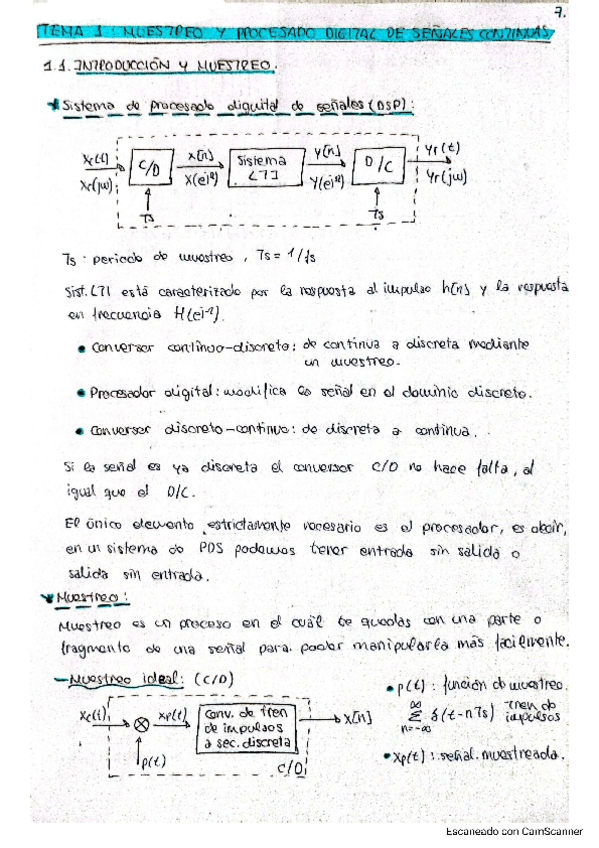 7.
TEMA 1: MUESTREO Y PROCESADO DIGITAL DE SEÑALES CONTINUAS
1.1. INTRODUCCIÓN Y MUESTREO.
* Sistema de procesado diguital de señales (DSP):
xc(t) C/D x[n] Sistema LTI y[n] D/C yr(t)
Xc(jω) X(e^jΩ) Y(e^jΩ) Yr(jω)
Ts Ts
Ts: periodo de muestreo, Ts = 1/fs
Sist. LTI está caracterizado por la respuesta al impulso h[n] y la respuesta
en frecuencia H(e^jΩ).
• Conversor continuo-discreto: de continua a discreta mediante
un muestreo.
• Procesador digital: modifica la señal en el dominio discreto.
• Conversor discreto-continuo: de discreta a continua.
Si la señal es ya discreta el conversor C/D no hace falta, al
igual que el D/C.
El único elemento estrictamente necesario es el procesador, es decir,
en un sistema de PDS podemos tener entrada sin salida o
salida sin entrada.
* Muestreo:
Muestreo es un proceso en el cuál te quedas con una parte o
fragmento de una señal para poder manipularla más facilmente.
- Muestreo ideal: (C/D)
xc(t) ⊗ xp(t) Conv. de tren
de impulsos
a sec. discreta
x[n]
p(t)
C/D
• p(t): función de muestreo.
∞
Σ δ(t-nTs) Tren de
impulsos
n=-∞
• xp(t): señal muestreada.
Escaneado con CamScanner